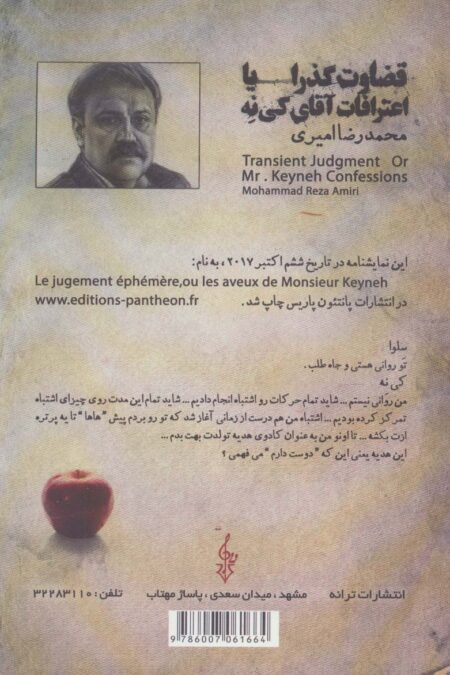 قضاوت گذرا یا
اعترافات آقای کی نِه
محمدرضا امیری
Transient Judgment Or
Mr . Keyneh Confessions
Mohammad Reza Amiri
این نمایشنامه در تاریخ ششم اکتبر ۲۰۱۷ ، به نام:
Le jugement éphémère,ou les aveux de Monsieur Keyneh
www.editions-pantheon.fr در انتشارات پانتئون پاریس چاپ شد .
سلوا
تو روانی هستی و جاه طلب .
کی نه
من روانی نیستم ... شاید تمام حرکات رو اشتباه انجام دادیم ... شاید تمام این مدت روی چیزای اشتباه
تمرکز کرده بودیم ... اشتباه من هم درست از زمانی آغاز شد که تو رو بردم پیش "هاها" تا یه پرتره
ازت بکشه ... تا اونو من به عنوان کادوی هدیه تولدت بهت بدم ...
این هدیه یعنی این که "دوست دارم" می فهمی ؟
ترانه
انتشارات ترانه مشهد ، میدان سعدی ، پاساژ مهتاب تلفن : ۳۲۲۸۳۱۱۰
9 786007 061664